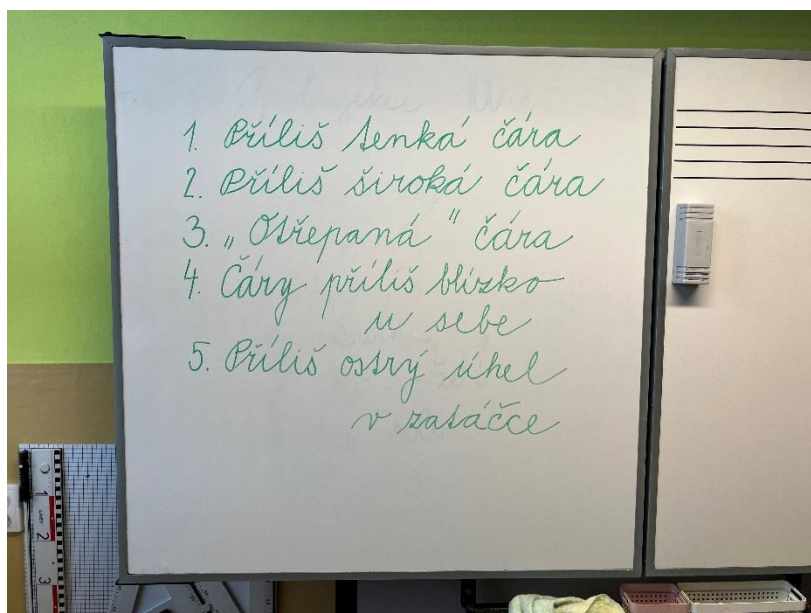 1. Příliš tenká čára
2. Příliš široká čára
3. „Otřepaná" čára
4. Čáry příliš blízko
u sebe
5. Příliš ostrý úhel
v zatáčce
1
2
3